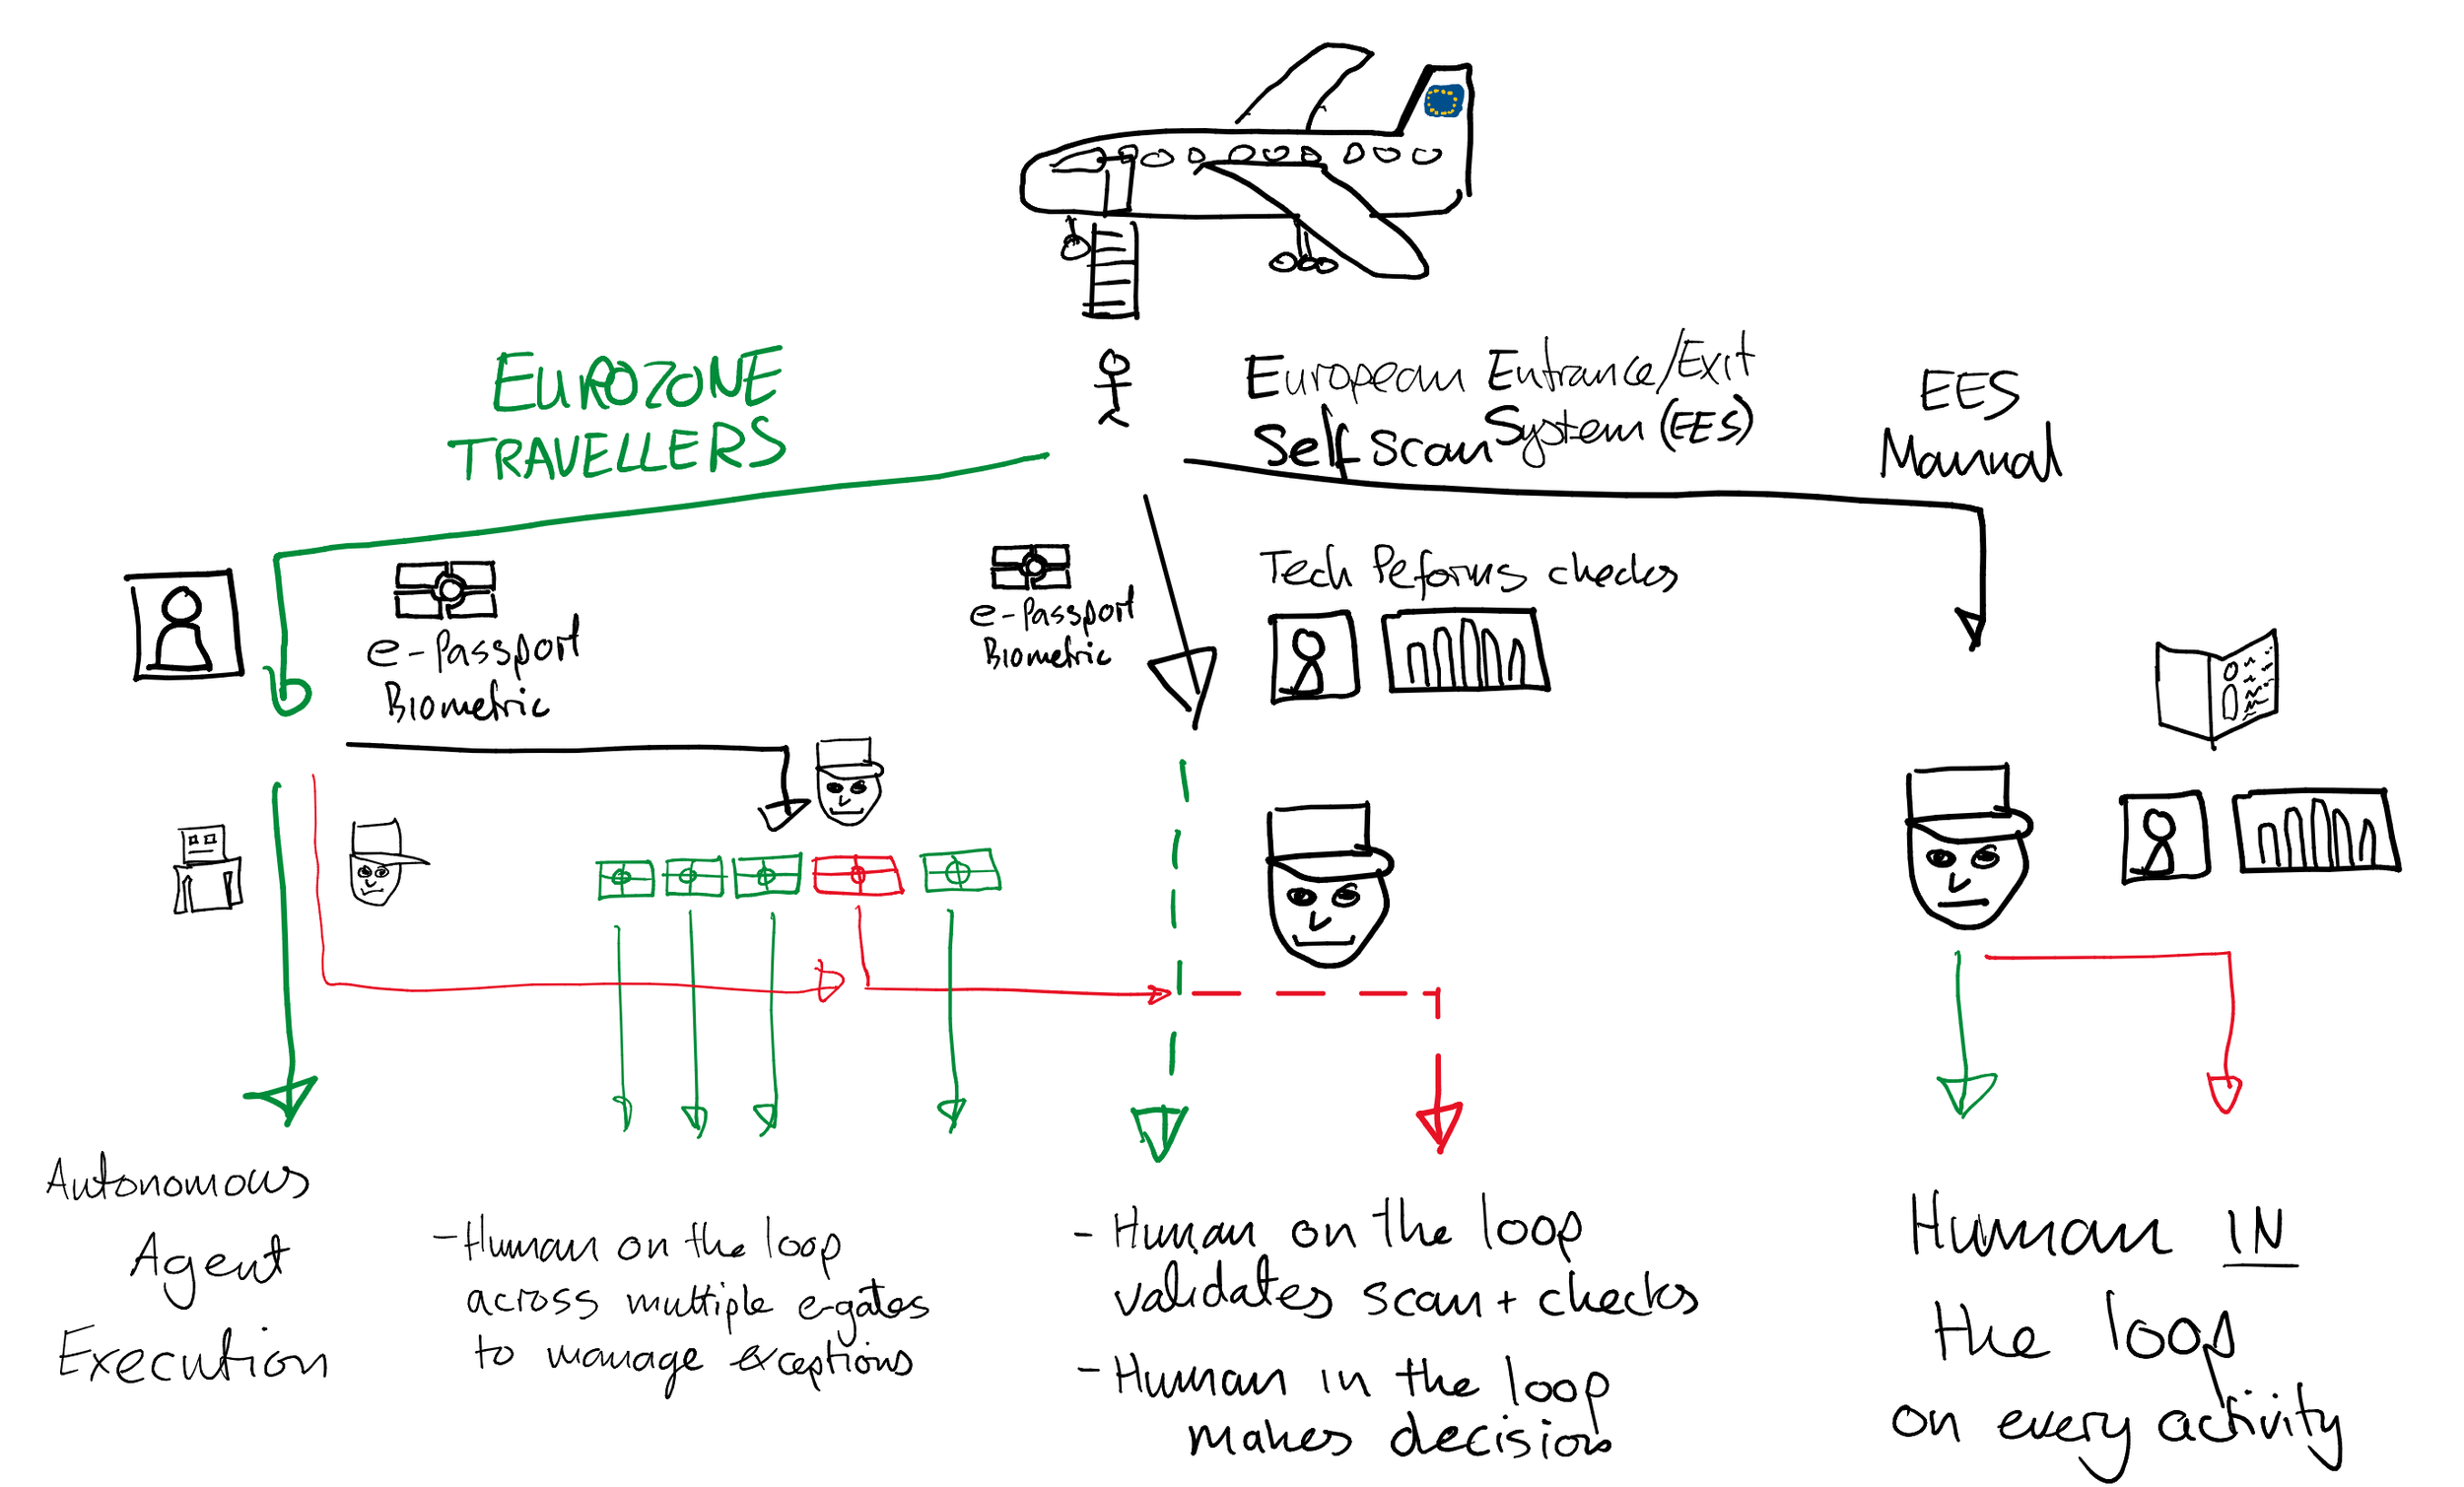 EUROZONE
TRAVELLERS
European Entrance/Exit
System (EES)
Self scan
EES
Manual
e-Passport
Biometric
e-Passport
Biometric
Tech Peforms checks
Autonomous
Agent
Execution
- Human on the loop
across multiple e-gates
to manage exceptions
- Human on the loop
validates scan + checks
- Human in the loop
makes decision
Human IN
the loop
on every activity